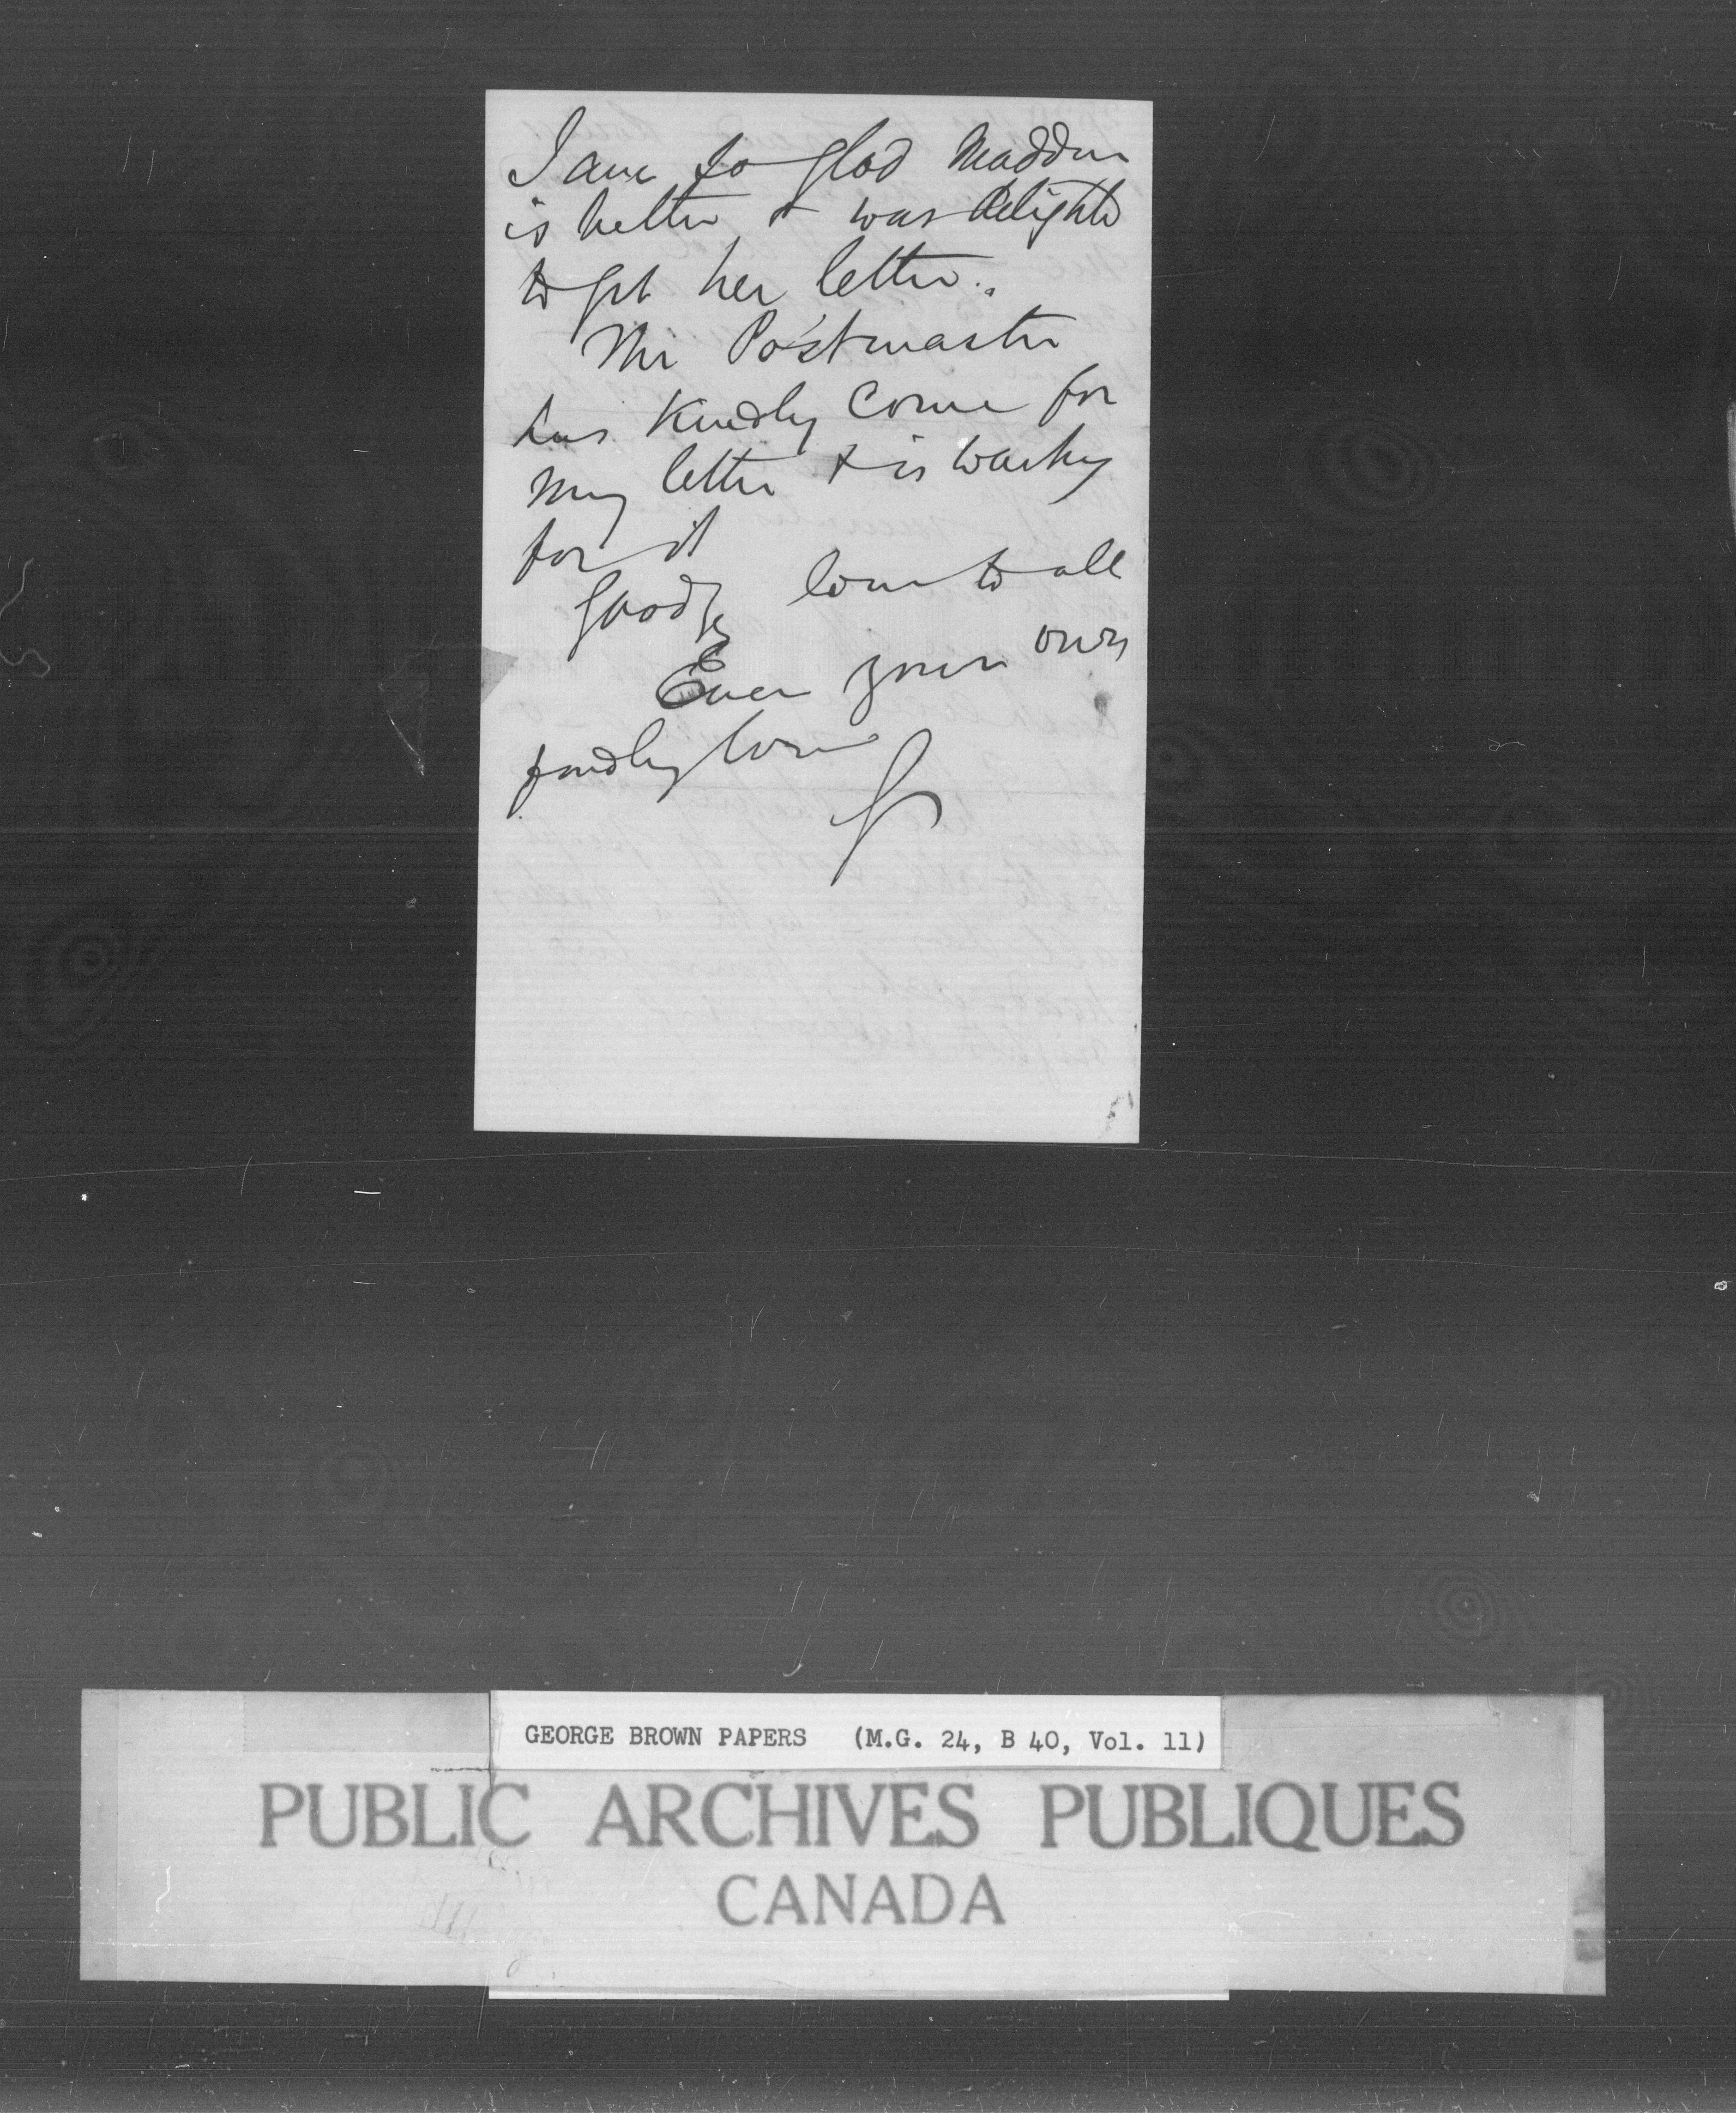 I am so glad Maddie
is better & was delighted
to get her letter.
The Postmaster
has kindly come for
my letter & is waiting
for it
Goodbye love to all
Ever your own
fondly love
G
GEORGE BROWN PAPERS (M.G. 24, B 40, Vol. 11)
PUBLIC ARCHIVES PUBLIQUES
CANADA